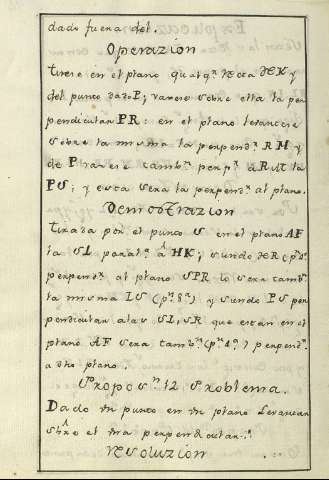 dado fuera del.
Operazion
Tirese en el plano qualq.ª recta HK y
del punto dado P; varese sobre ella la per
pendicular PR: en el plano levantese
sobre la misma la perpend.r RM y
de P tirarese tamb.n perp.r a RM la
PS; y esta sera la perpend.r al plano.
Demostrazion
Tirada por el punto S en el plano AF
la SL paral.a à HK; siendo HR (p.r
perpend.r al plano SPR lo sera tamb.n
la misma LS (p.r 8.ª) y siendo PS per
pendicular a las SL, SR que estan en el
plano AF sera tamb.n (p.r 4.ª) perpend.r
a dho plano.
Propos.n 12 Problema.
Dado un punto en un plano Levantar
sbre el una perpendicular.
resoluzion